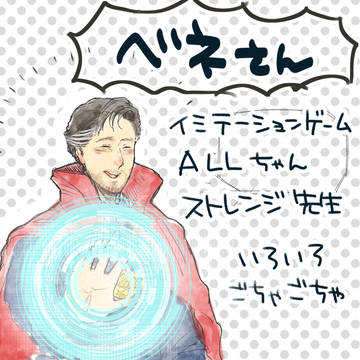 ベネさん
イミテーションゲーム
ALLちゃん
ストレンジ先生
いろいろ
ごちゃごちゃ